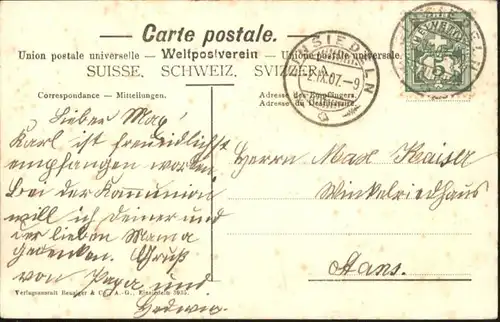 Carte postale.
Union postale universelle — Weltpostverein — Unione postale universale.
SUISSE. SCHWEIZ. SVIZZERA.
EINSIEDELN
IX.07.-9
5
Correspondance — Mitteilungen.
Adresse des Empfängers.
Adresse du Destinataire.
Lieber Max!
Karl ist freundlichst
empfangen worden.
Bei der Kommunion
will ich Deiner und
der lieben Mama
gedenken. Gruß
von Papa und
Hedwig.
Herrn Max Kaiser
Winkelriedhaus
Stans.
Verlagsanstalt Benziger & Co. A.-G., Einsiedeln